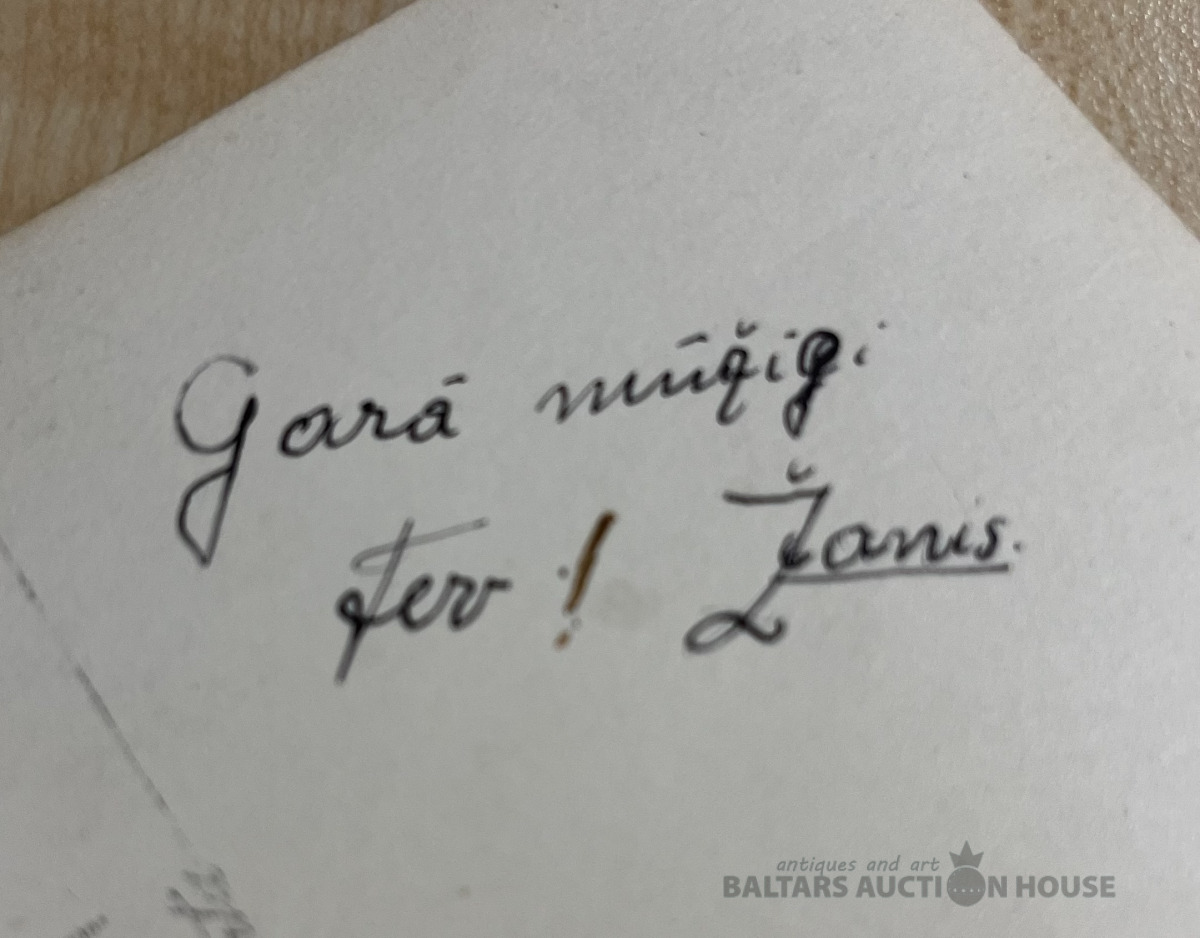 Garā mūžigi
Tev! Žanis.
antiques and art
BALTARS AUCTION HOUSE